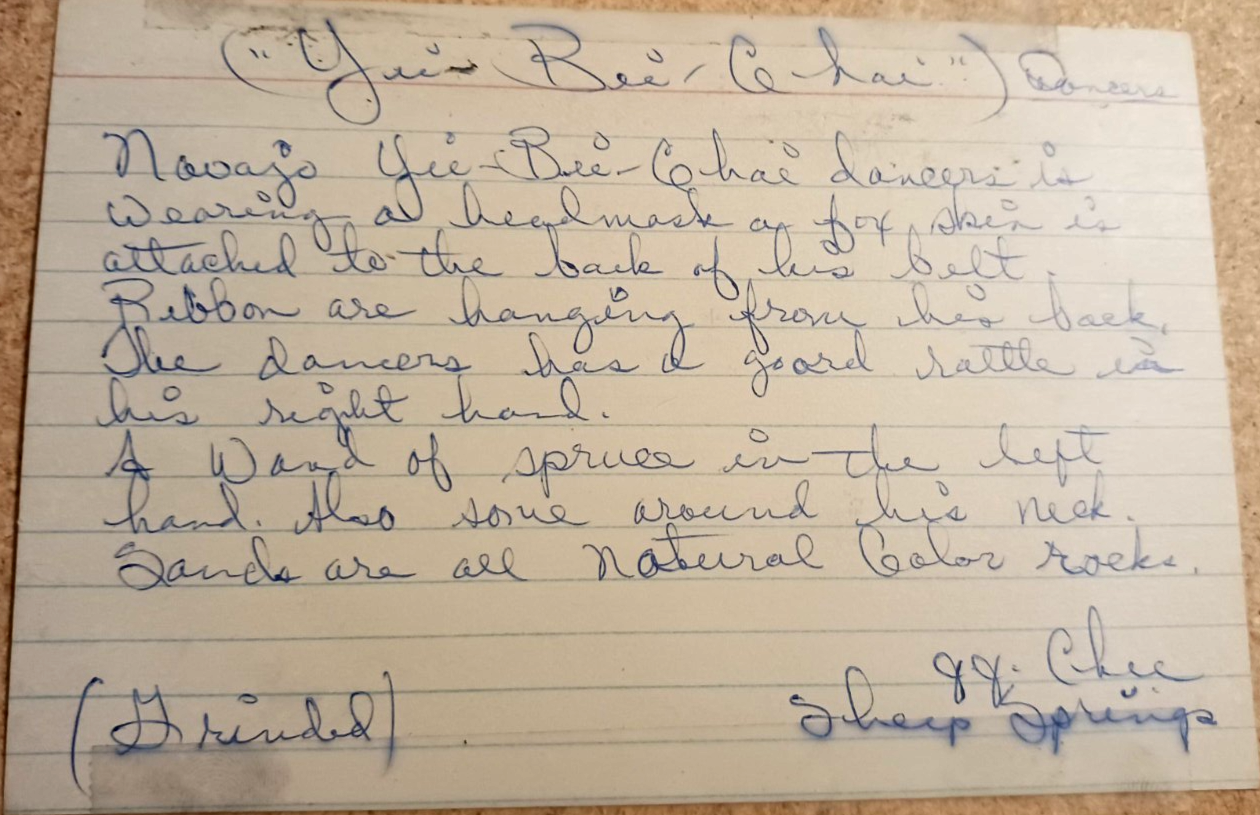 ("Yei-Bei-Chai") Dancers
Navajo Yei-Bei-Chai dancers is
wearing a headmask a fox skin is
attached to the back of his belt.
Ribbon are hanging from his back.
The dancers has a goard rattle in
his right hand.
A Wand of spruce in the left
hand. Also some around his neck.
Sands are all Natural Color rocks.
JJ. Chee
(Grinded) Sheep Springs